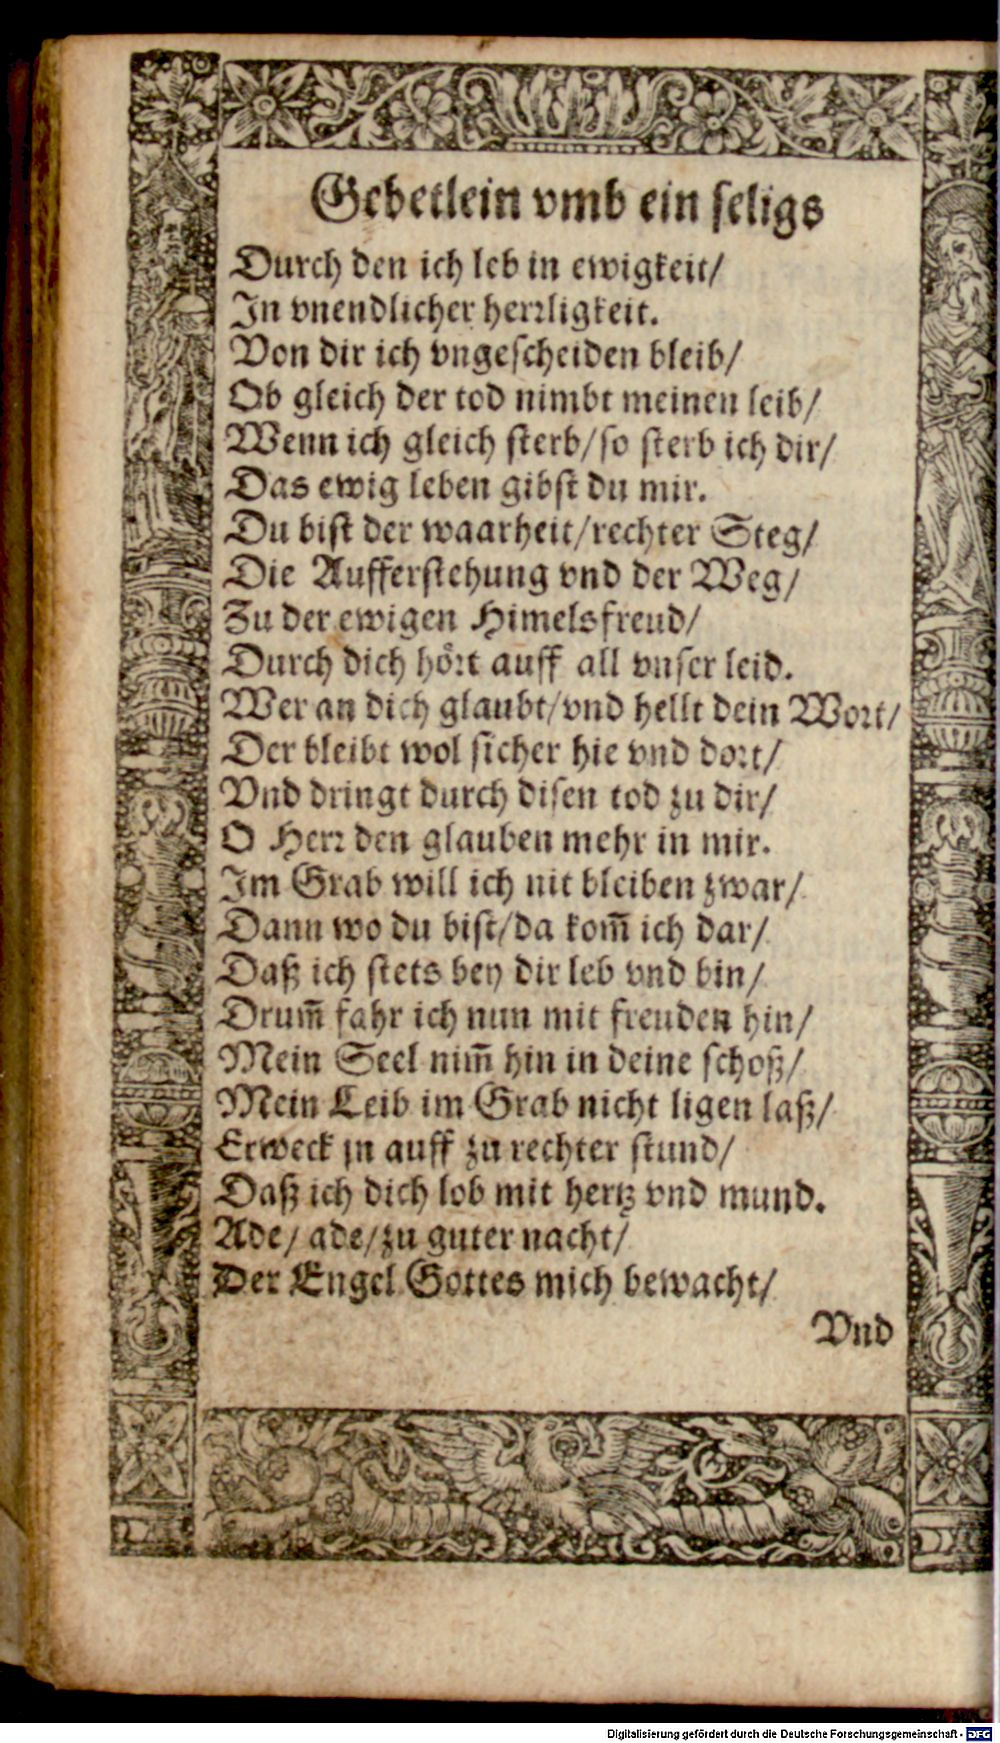 Gebetlein vmb ein seligs
Durch den ich leb in ewigkeit/
In vnendlicher herꝛligkeit.
Von dir ich vngescheiden bleib/
Ob gleich der tod nimbt meinen leib/
Wenn ich gleich sterb/so sterb ich dir/
Das ewig leben gibst du mir.
Du bist der waarheit/rechter Steg/
Die Aufferstehung vnd der Weg/
Zu der ewigen Himelsfreud/
Durch dich hoͤꝛt auff all vnser leid.
Wer an dich glaubt/vnd hellt dein Woꝛt/
Der bleibt wol sicher hie vnd doꝛt/
Vnd dringt durch disen tod zu dir/
O Herꝛ den glauben mehr in mir.
Im Grab will ich nit bleiben zwar/
Dann wo du bist/da kom̃ ich dar/
Daß ich stets bey dir leb vnd bin/
Drum̃ fahr ich nun mit freuden hin/
Mein Seel nim̃ hin in deine schoß/
Mein Leib im Grab nicht ligen laß/
Erweck jn auff zu rechter stund/
Daß ich dich lob mit hertz vnd mund.
Ade/ ade/zu guter nacht/
Der Engel Gottes mich bewacht/
Vnd
Digitalisierung gefördert durch die Deutsche Forschungsgemeinschaft - DFG